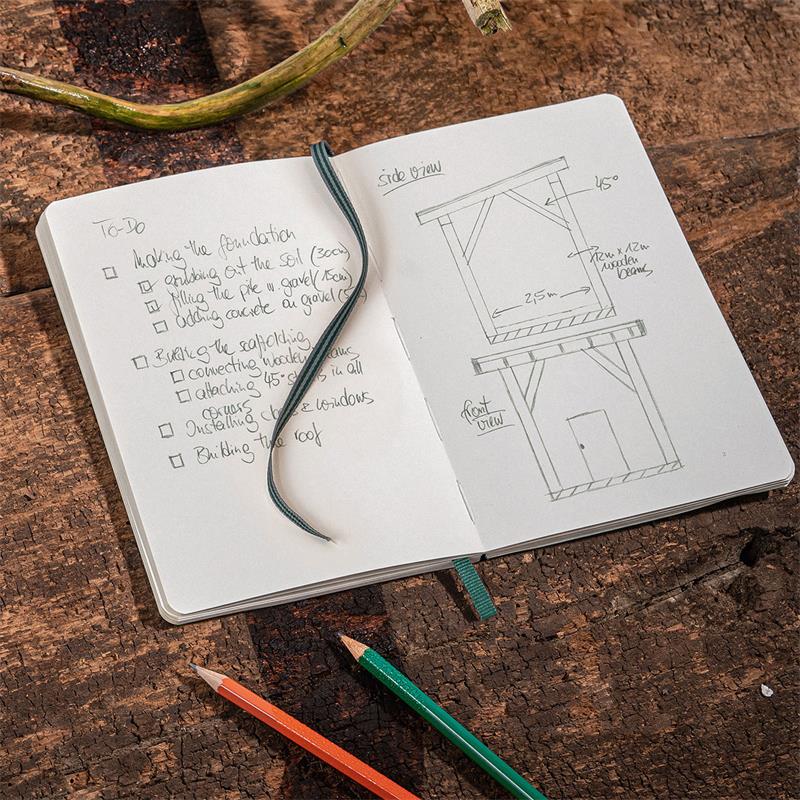 To-Do
Making the foundation
grubbing out the soil (30cm)
filling the pile w. gravel (15cm)
adding concrete on gravel
Building the scaffolding
connecting wooden
attaching 45° in all
corners
Installing & windows
Building the roof
side view
45°
12m x 12m
wooden
beams
2,5m
front
view
2